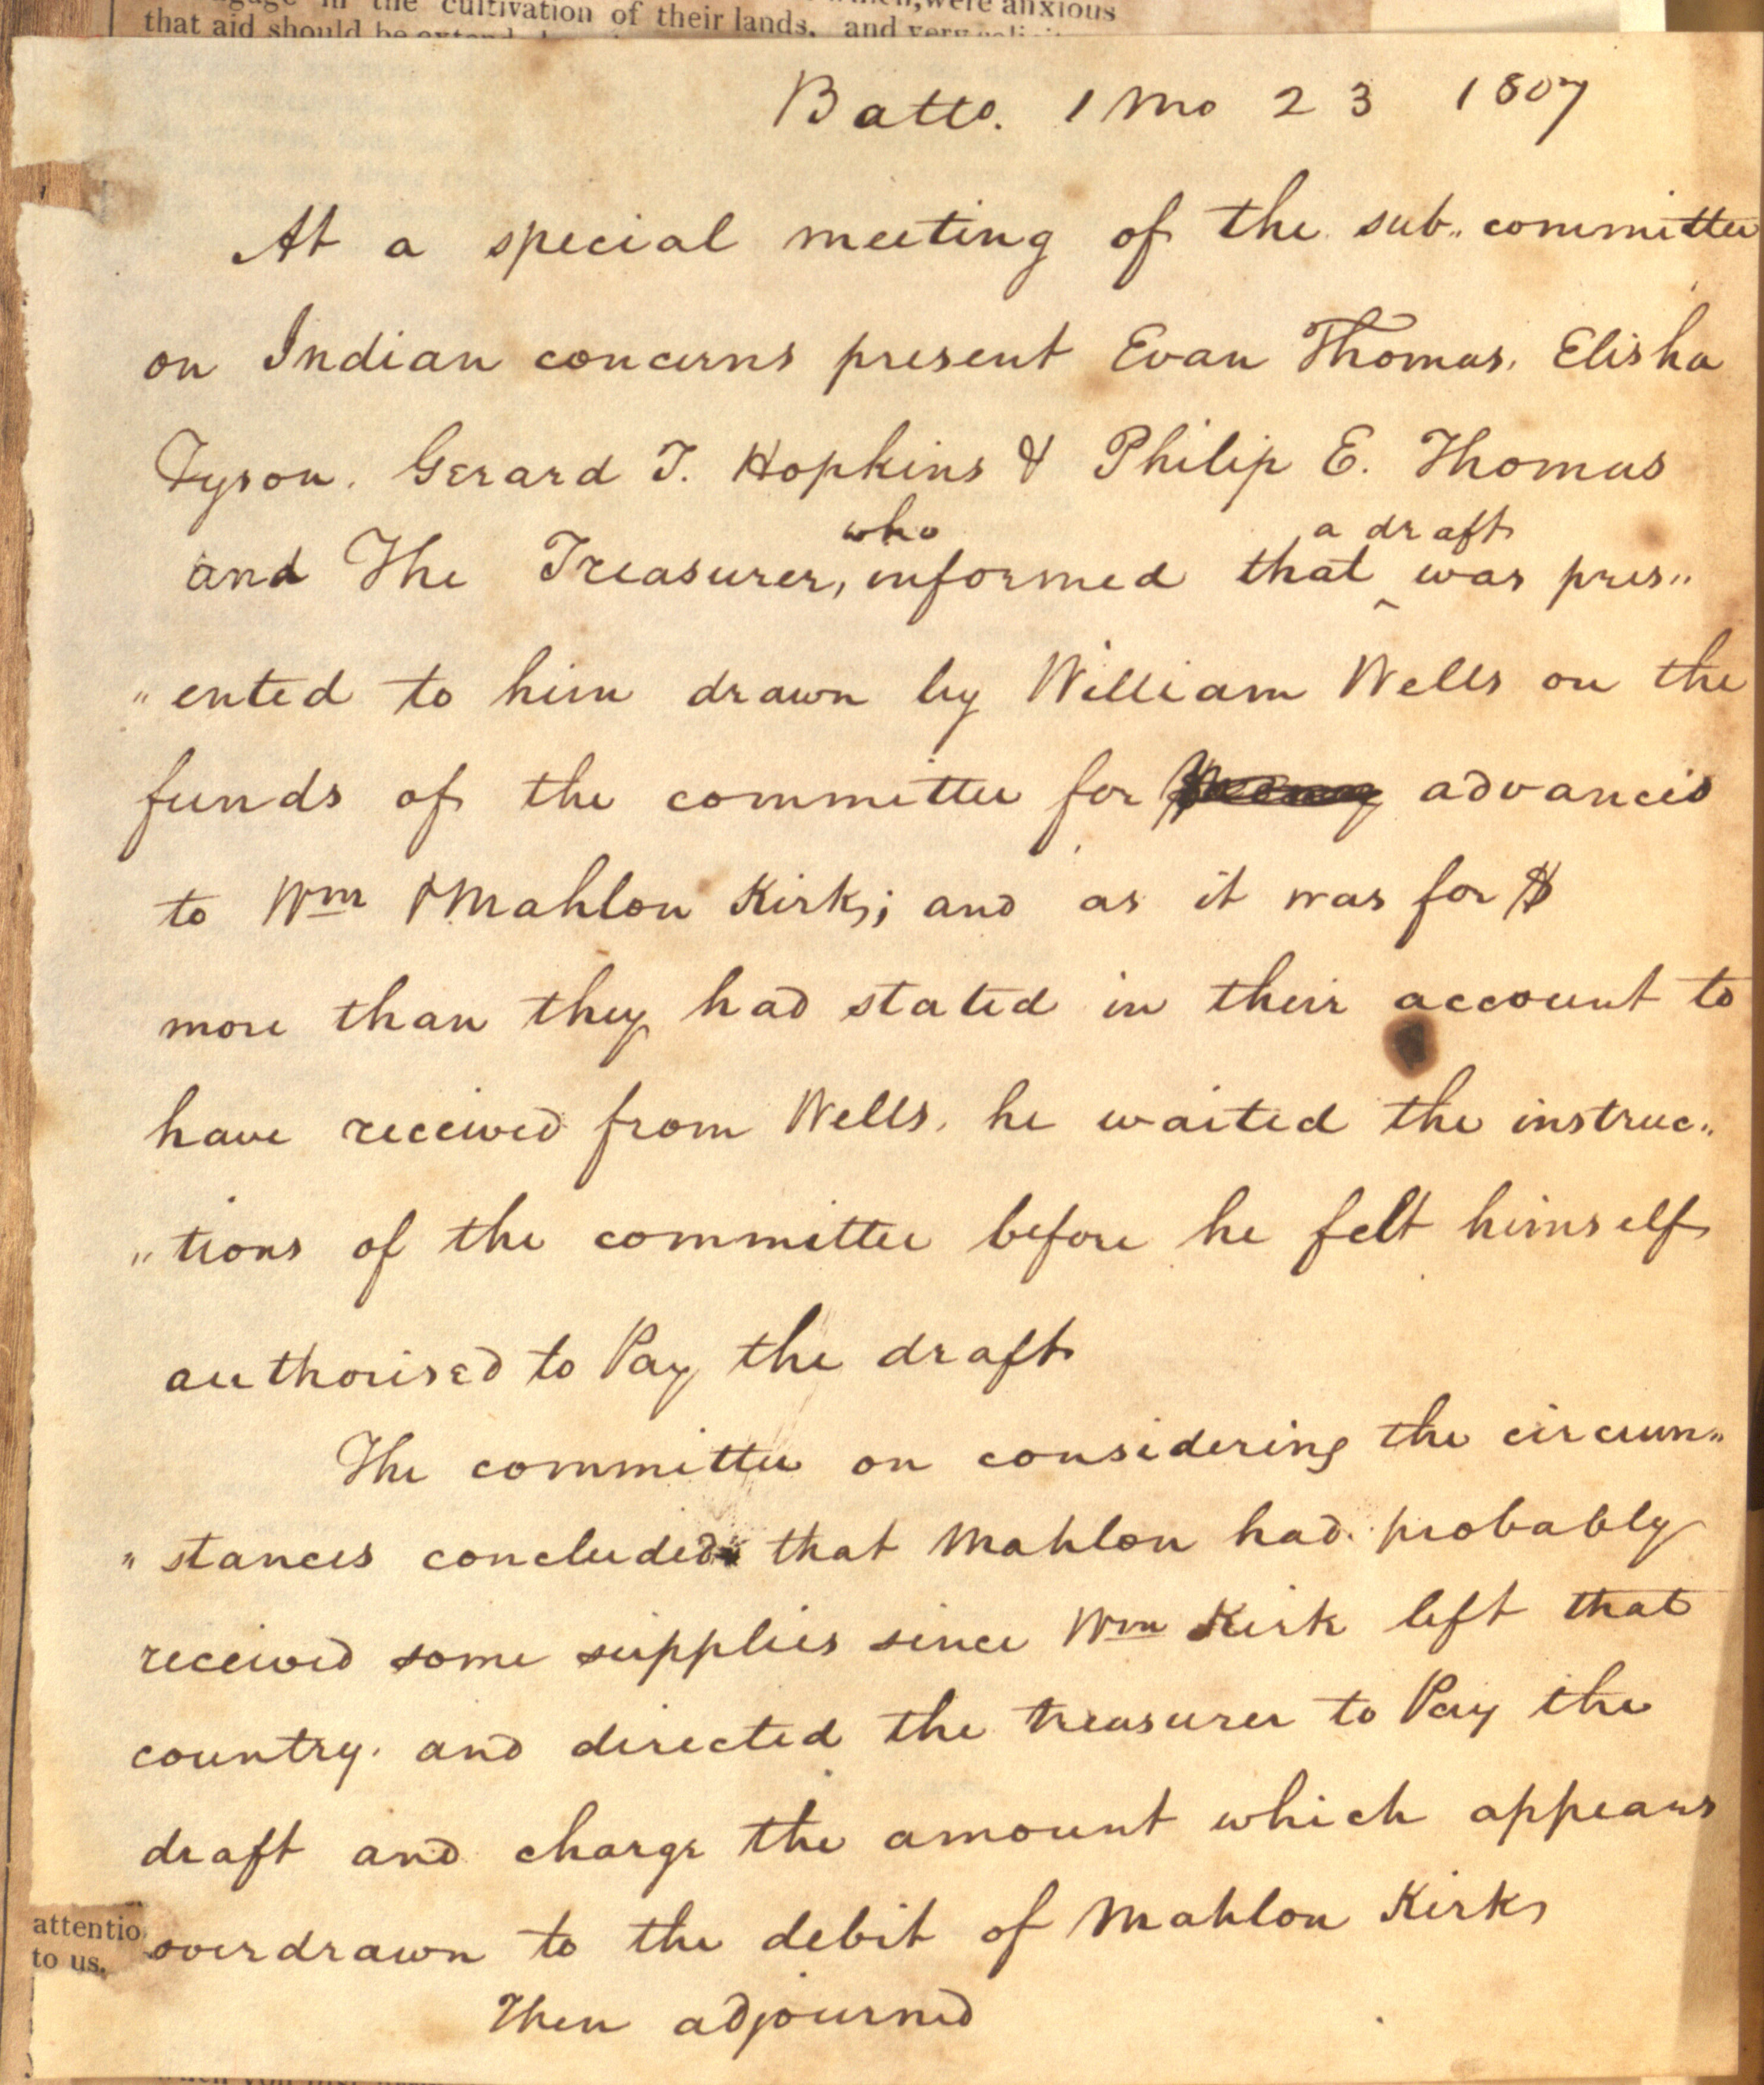 the cultivation of their lands, were anxious
that aid should be and very
Balto. 1 Mo 23 1807
At a special meeting of the sub„ committee
on Indian concerns present Evan Thomas. Elisha
Tyson. Gerard T. Hopkins & Philip E. Thomas
who a draft
and The Treasurer, informed that ‸ was pres„
„ented to him drawn by William Wells on the
funds of the committee for advances
to Wm & Mahlon Kirk; and as it was for $
more than they had stated in their account to
have received from Wells. he waited the instruc„
„tions of the committee before he felt himself
authorised to Pay the draft
The committee on considering the circum„
„stances concluded that Mahlon had probably
received some supplies since Wm Kirk left that
country. and directed the treasurer to Pay the
draft and charge the amount which appears
attentio
overdrawn to the debit of Mahlon Kirk
to us.
Then adjourned